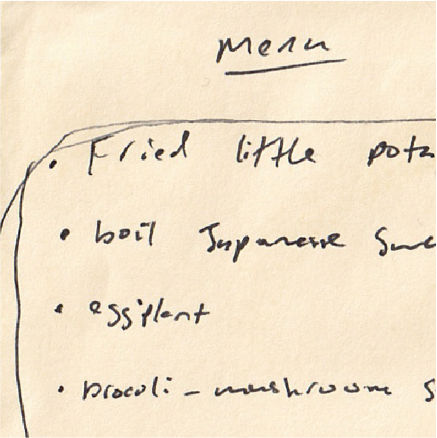 Menu
• Fried little pota
• boil Japanese
• eggplant
• brocoli - mushroom s